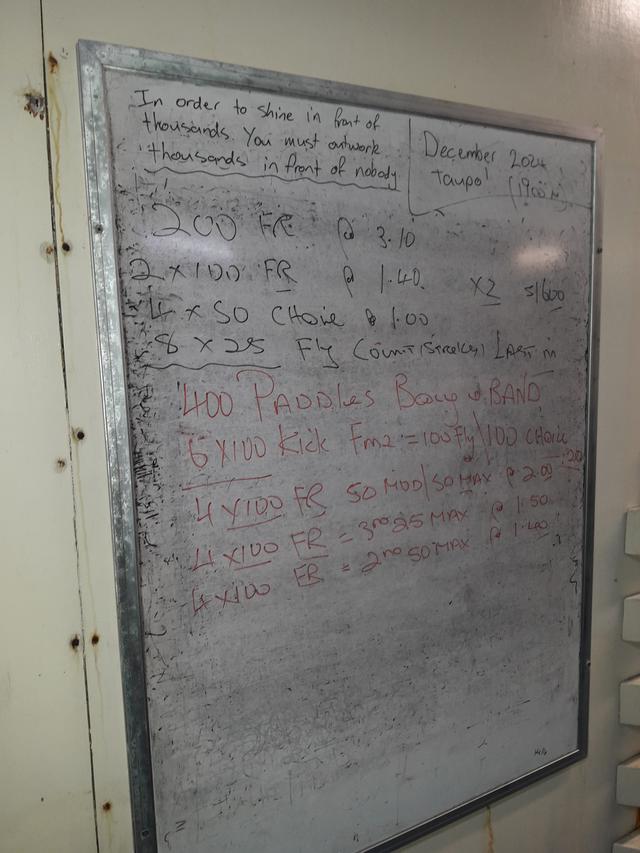 In order to shine in front of
thousands. You must outwork
thousands in front of nobody
December 2024
Taupo (1900m)
200 FR @ 3.10
2 x 100 FR @ 1.40. x2
4 x 50 CHOICE @ 1.00
8 x 25 Fly Count (Strokes) LAST in
400 PADDLES Buoy & BAND
6 x 100 Kick Fm2 = 100 Fly \ 100 CHOICE
4 x 100 FR 50 MOD/50 MAX @ 2.00
4 x 100 FR = 3RD 25 MAX @ 1.50
4 x 100 FR = 2ND 50 MAX @ 1.40